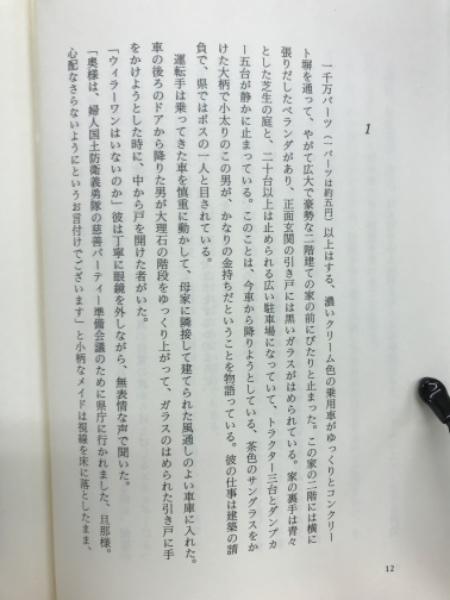 1
一千万バーツ（一バーツは約五円）以上はする、濃いクリーム色の乗用車がゆっくりとコンクリー
ト塀を通って、やがて広大で豪勢な二階建ての家の前にぴたりと止まった。この家の二階には横に
張りだしたベランダがあり、正面玄関の引き戸には黒いガラスがはめられている。家の裏手は青々
とした芝生の庭と、二十台以上は止められる広い駐車場になっていて、トラクター三台とダンプカ
ー五台が静かに止まっている。このことは、今車から降りようとしている、茶色のサングラスをか
けた大柄で小太りのこの男が、かなりの金持ちだということを物語っている。彼の仕事は建築の請
負で、県ではボスの一人と目されている。
運転手は乗ってきた車を慎重に動かして、母家に隣接して建てられた風通しのよい車庫に入れた。
車の後ろのドアから降りた男が大理石の階段をゆっくり上がって、ガラスのはめられた引き戸に手
をかけようとした時に、中から戸を開けた者がいた。
「ウィラーワンはいないのか」彼は丁寧に眼鏡を外しながら、無表情な声で聞いた。
「奥様は、婦人国土防衛義勇隊の慈善パーティー準備会議のために県庁に行かれました、旦那様。
心配なさらないようにというお言付けでございます」と小柄なメイドは視線を床に落としたまま、
12